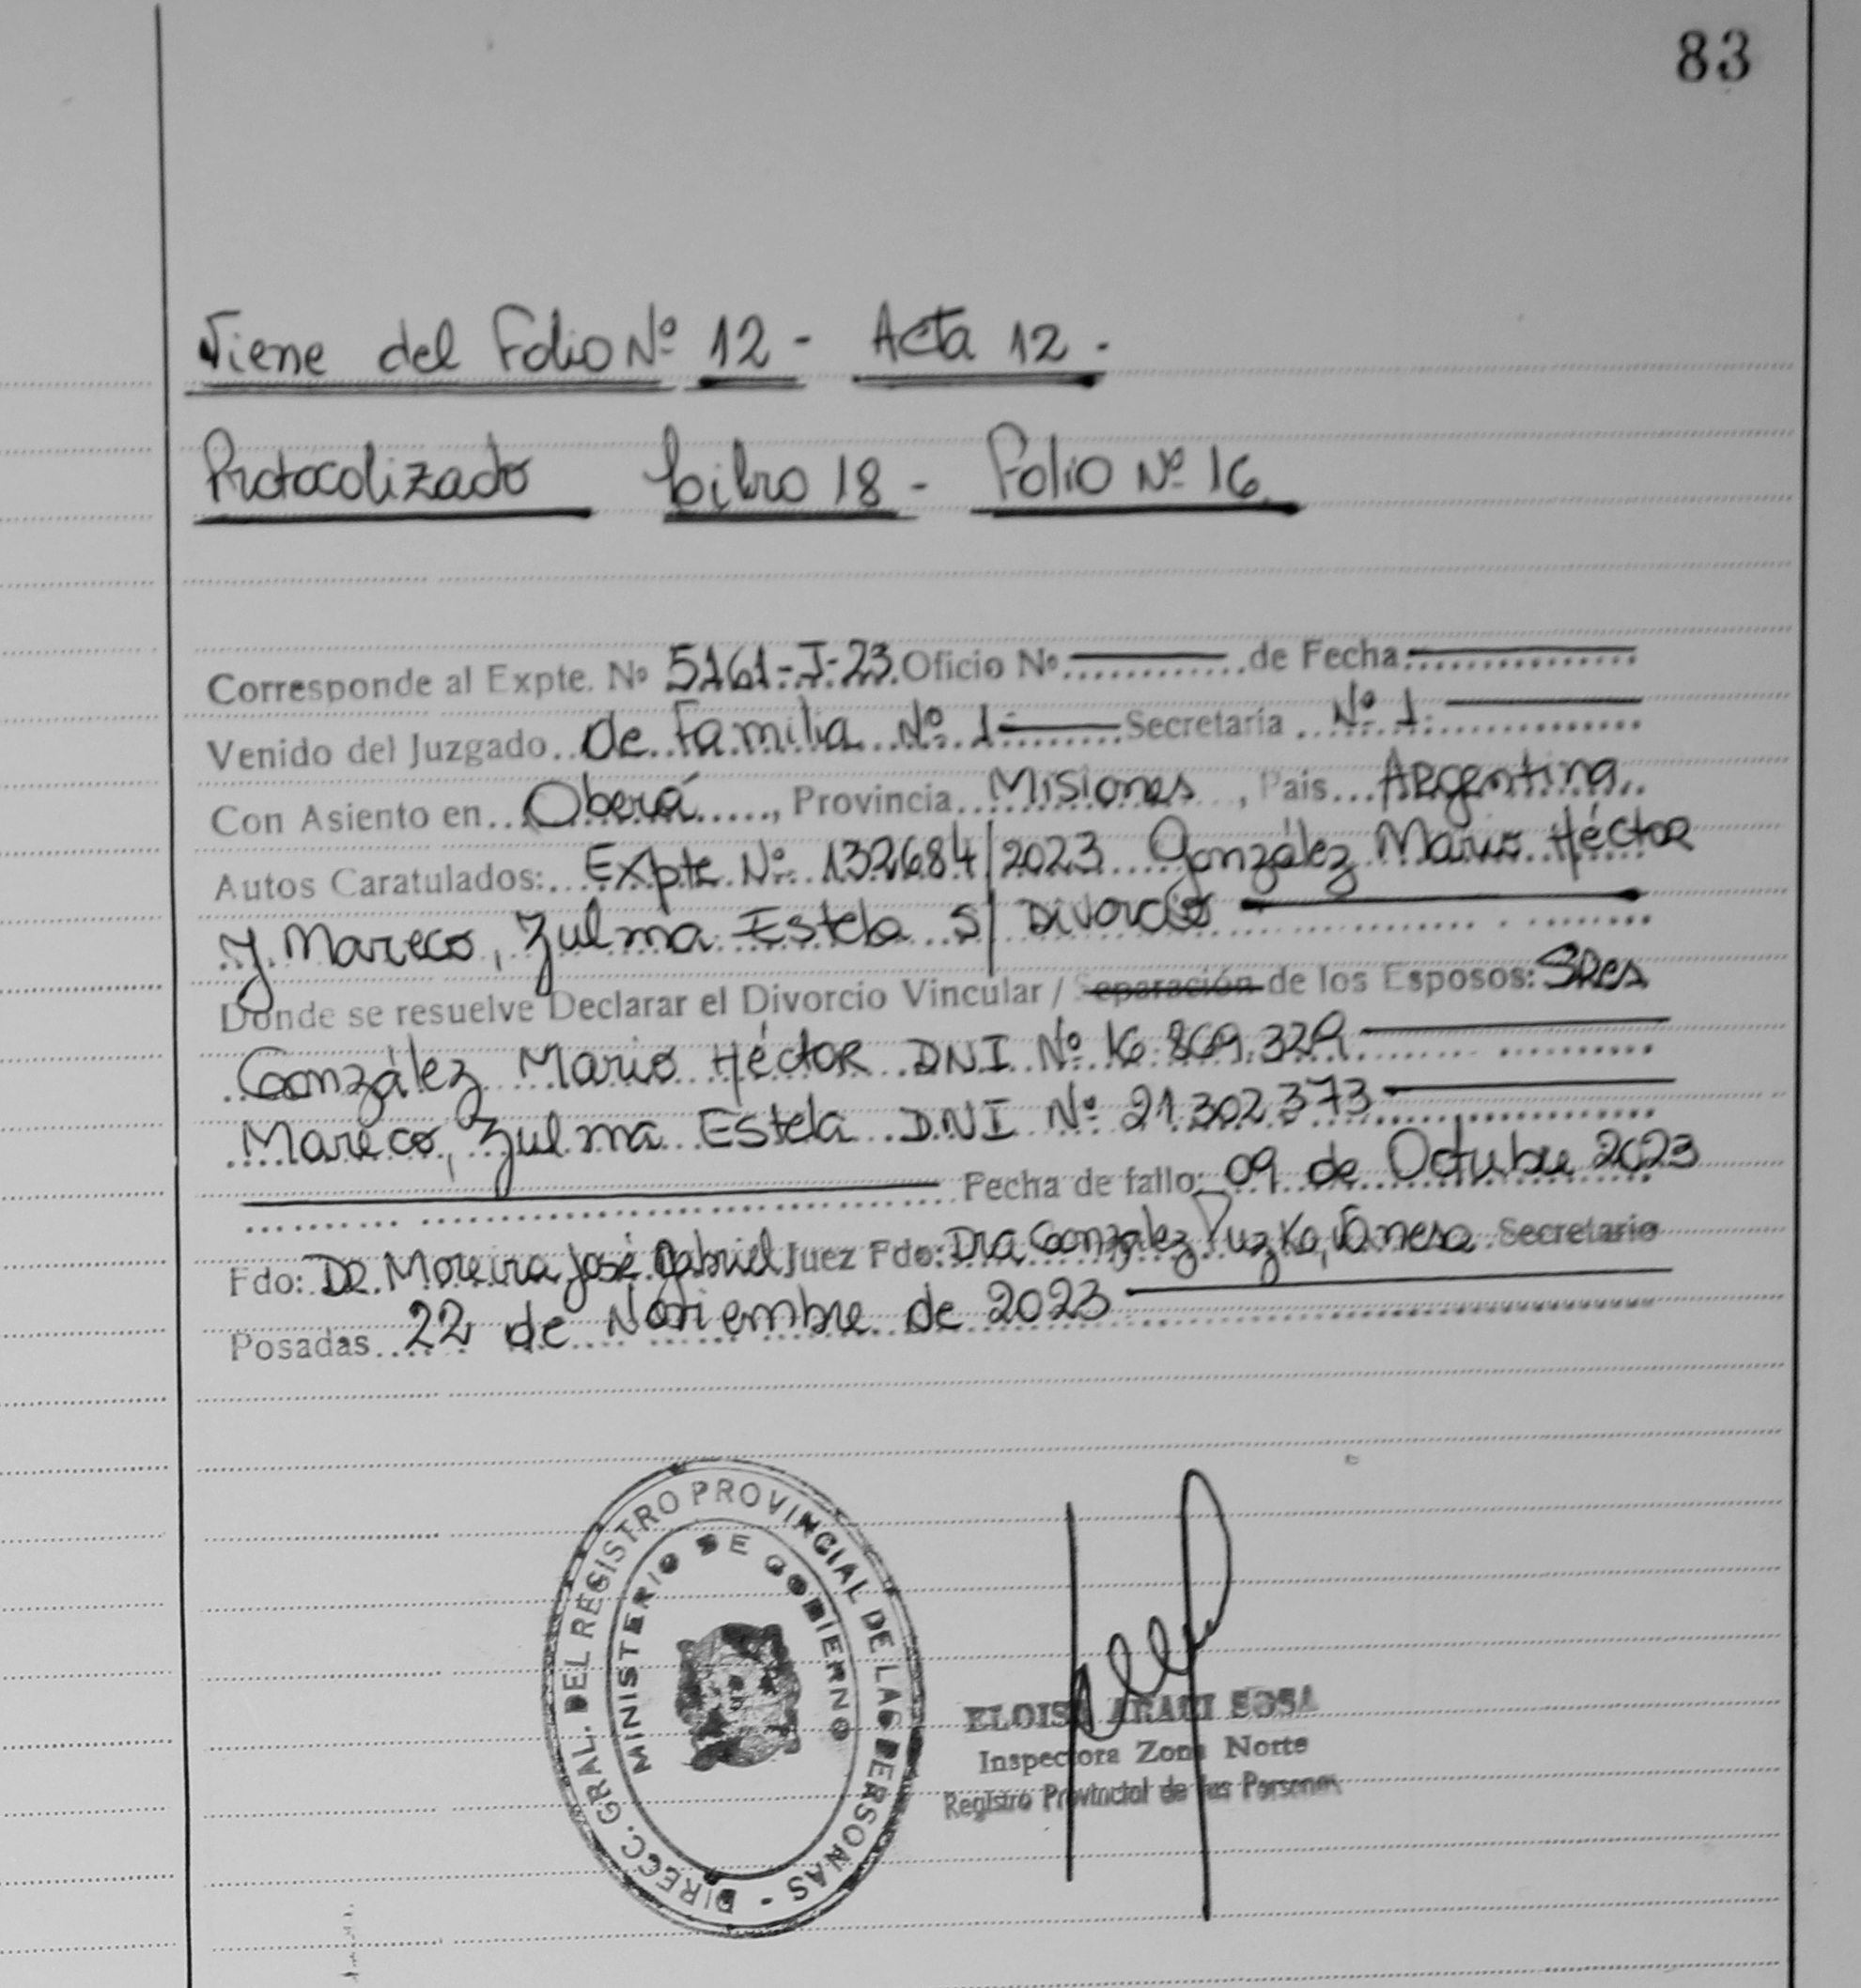 83
Viene del Folio Nº 12 - Acta 12 -
Protocolizado Libro 18 - Folio Nº 16
Corresponde al Expte. Nº 5161-I-23 Oficio Nº de Fecha
Venido del Juzgado de Familia Nº 1 Secretaria Nº 1
Con Asiento en Oberá, Provincia Misiones, Pais Argentina
Autos Caratulados: Expte Nº 132684/2023 González Mario Héctor
y Mareco, Zulma Estela s/ Divorcio
Donde se resuelve Declarar el Divorcio Vincular / Separación de los Esposos: Sres
González Mario Héctor DNI Nº 16.869.329
Mareco, Zulma Estela DNI Nº 21.302.373
Fecha de fallo: 09 de Octubre 2023
Fdo: Dr. Moreira José Gabriel Juez Fdo: Dra González Vanesa Secretario
Posadas 22 de Noviembre de 2023
DIRECC. GRAL. DEL REGISTRO PROVINCIAL DE LAS PERSONAS -
MINISTERIO DE GOBIERNO
ELOISA ARACI SOSA
Inspectora Zona Norte
Registro Provincial de las Personas